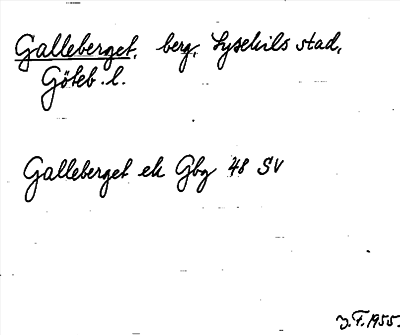 Galleberget, berg, Lysekils stad,
Göteb. l.
Galleberget ek Gbg 48 SV
J.F. 1955.